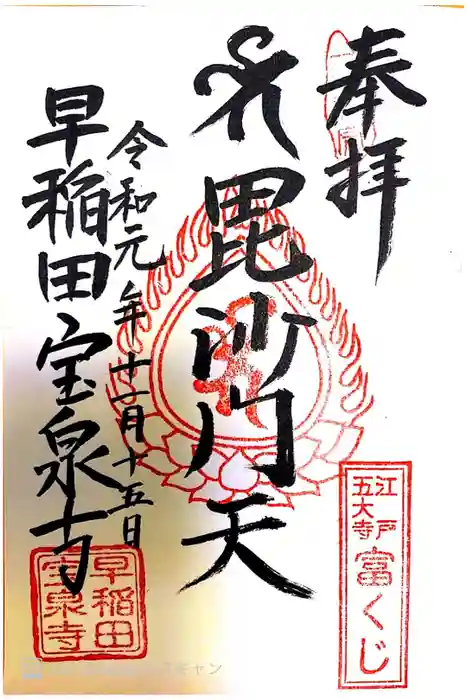 奉拝
毘沙門天
令和元年十一月十五日
早稲田宝泉寺
江戸
五大寺
富くじ
早稲田
宝泉寺